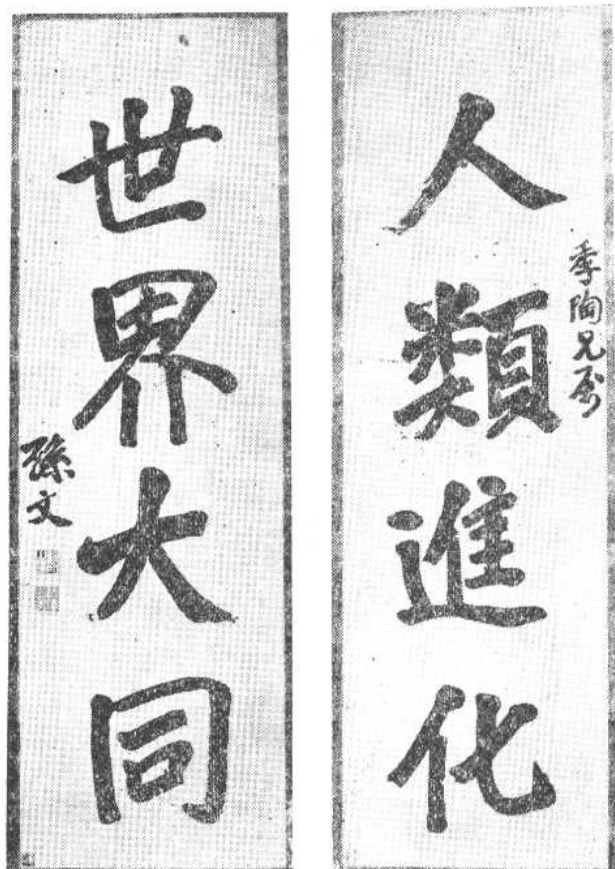 人類進化
季陶兄屬
世界大同
孫文